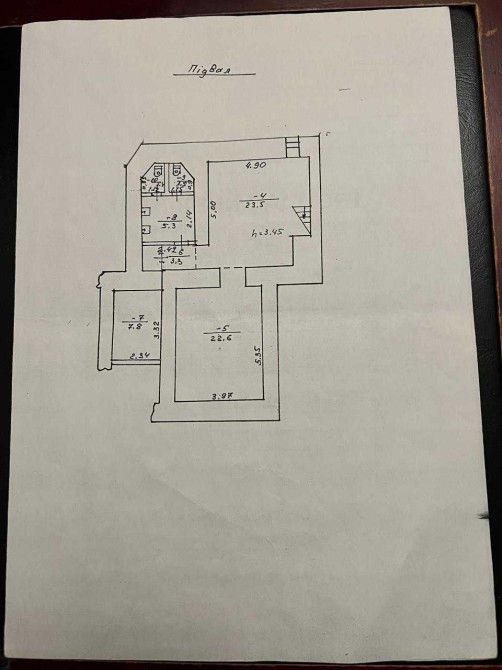 Підвал
4.90
-4
23.5
5.00
h=3.45
-8
5.3
2.14
2.42
-6
3.3
-7
7.8
3.32
2.34
-5
22.6
5.35
3.97